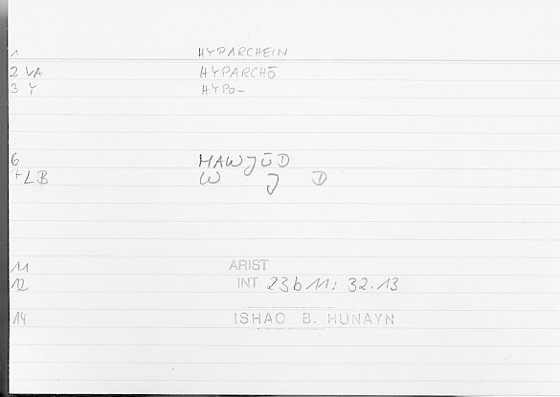 1 HYPARCHEIN
2 VA HYPARCHŌ
3 Y HYPO-
6 MAWJŪD
+LB W J D
11 ARIST
12 INT 23b11: 32.13
14 ISHAQ B. HUNAYN